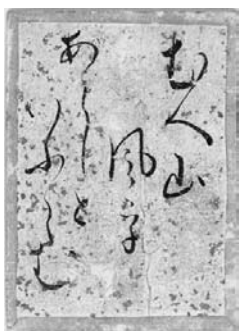 むへ山
風を
あらしと
いふらむ